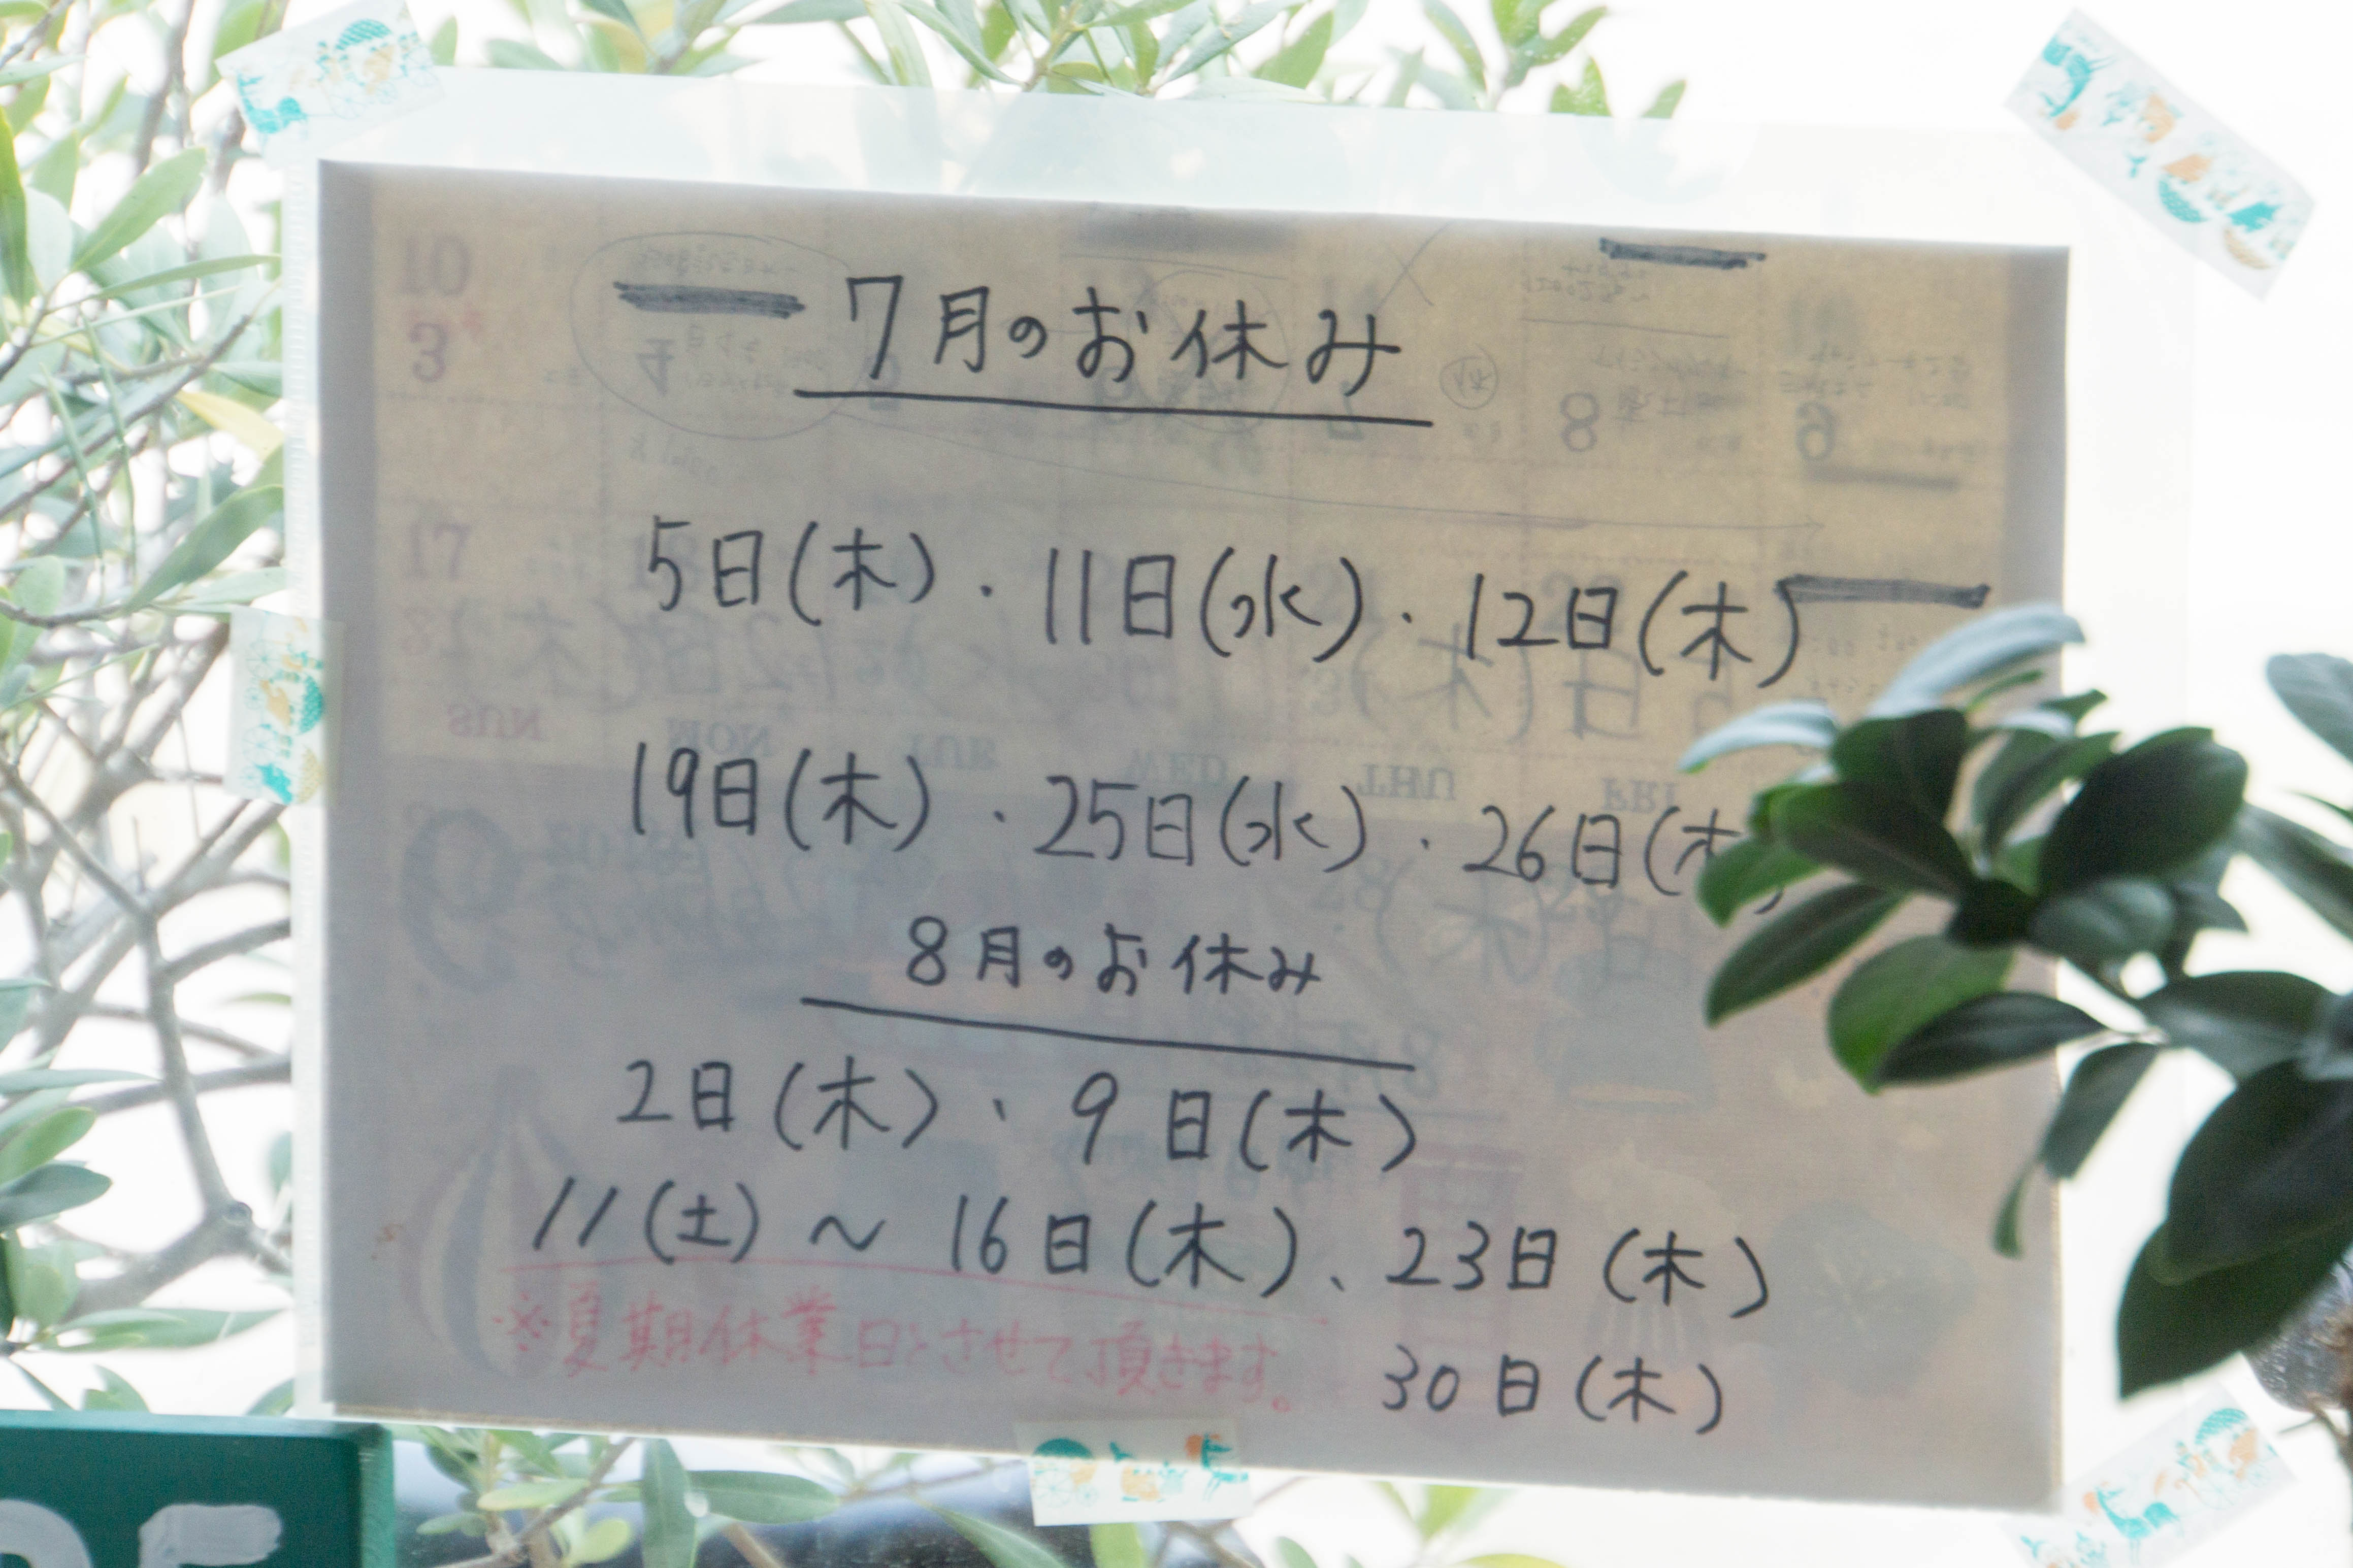 7月のお休み
5日(木)・11日(水)・12日(木)
19日(木)・25日(水)・26日(木)
8月のお休み
2日(木)、9日(木)
11(土)～16日(木)、23日(木)
※夏期休業日とさせて頂きます。 30日(木)